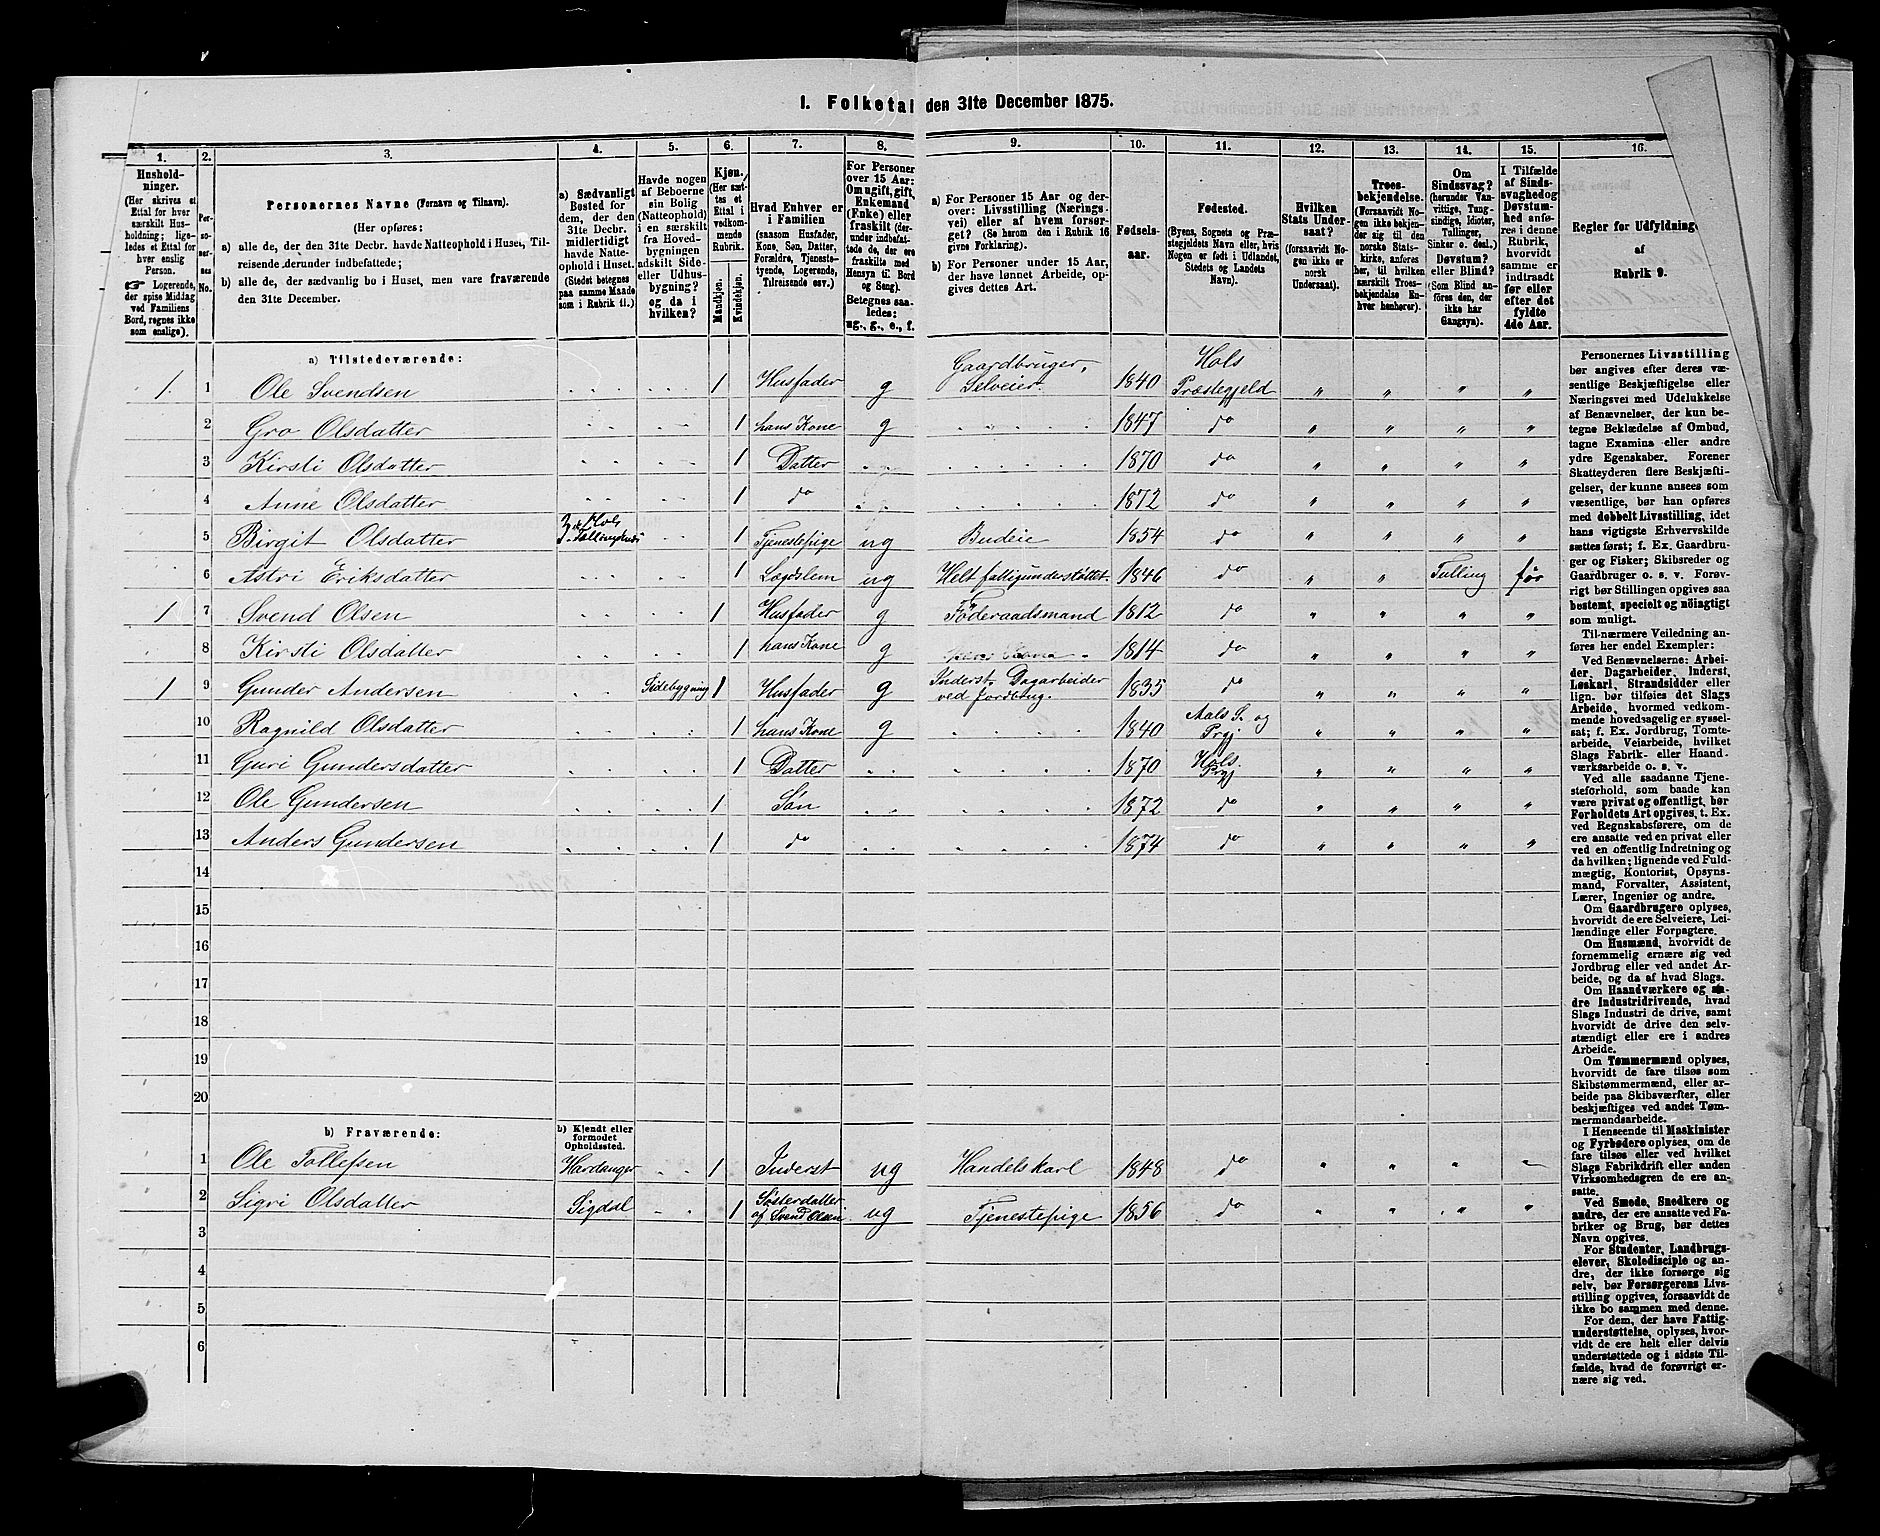 1. Folketal den 31te December 1875.
1. 2. 3. 4. 5. 6. 7. 8. 9. 10. 11. 12. 13. 14. 15. 16.
Hushold-
ninger.
(Her skrives et
Ettal for hver
særskilt Hus-
holdning; lige-
ledes et Ettal for
hver enslig
Person.
☞ Logerende,
der spise Middag
ved Familiens
Bord, regnes ikke
som enslige).
Per-
so-
ner-
nes
No.
Personernes Navne (Fornavn og Tilnavn).
(Her opføres:
a) alle de, der den 31te Decbr. havde Natteophold i Huset, Til-
reisende derunder indbefattede;
b) alle de, der sædvanlig bo i Huset, men vare fraværende
den 31te December.
a) Sædvanligt
Bosted for
dem, der den
31te Decbr.
midlertidigt
havde Natte-
ophold i Huset.
(Stedet betegnes
paa samme Maade
som i Rubrik 11.)
Havde nogen
af Beboerne
sin Bolig
(Natteophold)
i en særskilt
fra Hoved-
bygningen
adskilt Side-
eller Udhus-
bygning?
og da i
hvilken?
Kjøn.
(Her sæt-
tes et
Ettal i
vedkom-
mende
Rubrik.
Mandkjøn.
Kvindekjøn.
Hvad Enhver er
i Familien
(saasom Husfader,
Kone, Søn, Datter,
Forældre, Tjeneste-
tyende, Logerende,
Tilreisende osv.)
For Personer
over 15 Aar:
Om ugift, gift,
Enkemand
(Enke) eller
fraskilt (der-
under indbefat-
tede de, der ere
fraskilte med
Hensyn til Bord
og Seng).
Betegnes saa-
ledes:
ug., g., e., f.
a) For Personer 15 Aar og der-
over: Livsstilling (Nærings-
vei) eller af hvem forsør-
get? (Se herom den i Rubrik 16
givne Forklaring).
b) For Personer under 15 Aar,
der have lønnet Arbeide, op-
gives dettes Art.
Fødsels-
aar.
Fødested.
(Byens, Sognets og Præ-
stegjeldets Navn eller, hvis
Nogen er født i Udlandet,
Stedets og Landets
Navn).
Hvilken
Stats Under-
saat?
(forsaavidt No-
gen ikke er
norsk
Undersaat).
Troes-
bekjendelse.
(Forsaavidt No-
gen ikke bekjen-
der sig til den
norske Stats-
kirke, anføres
her, til hvilken
særskilt Troes-
bekjendelse En-
hver henhører).
Om
Sindssvag?
(herunder Van-
vittige, Tung-
sindige, Idioter,
Tullinger,
Sinker o. desl.)
Døvstum?
eller Blind?
(Som Blind an-
føres den, der
ikke har
Gangsyn).
I Tilfælde
af Sinds-
svaghed og
Døvstum-
hed anfø-
res i denne
Rubrik,
hvorvidt
samme er
indtraadt
før eller
efter det
fyldte
4de Aar.
Regler for Udfyldning
af
Rubrik 9.
a) Tilstedeværende:
1. 1 Ole Svendsen 1 Husfader g Gaardbruger, Selveier. 1840 Hols Præstegjeld " " " "
2 Gro Olsdatter 1 hans Kone g 1847 do " " " "
3 Kirsti Olsdatter 1 Datter 1870 do " " " "
4 Anne Olsdatter 1 do 1872 do " " " "
5 Birgit Olsdatter 1 Tjenestepige ug Budeie 1854 do " " " "
6 Astri Eriksdatter 1 Lægdslem ug Helt fattigunderstøttet. 1846 do " " Tulling før
1 7 Svend Olsen 1 Husfader g Föderaadsmand 1812 do " " " "
8 Kirsti Olsdatter 1 hans Kone g 1814 do " " " "
1 9 Gunder Andersen Sidebygning 1 Husfader g Inderst. Dagarbeider ved Jordbrug. 1835 do " " " "
10 Ragnild Olsdatter 1 hans Kone g 1840 Aals S. og Prgj " " " "
11 Guri Gundersdatter 1 Datter 1870 Hols Prgj " " " "
12 Ole Gundersen 1 Søn 1872 do " " " "
13 Anders Gundersen 1 do 1874 do " " " "
14
15
16
17
18
19
20
b) Fraværende:
b) Kjendt eller
formodet
Opholdssted.
1 Ole Tollefsen Hardanger 1 Inderst ug Handelskarl 1848 do " " " "
2 Sigri Olsdatter Sigdal 1 Søsterdatter af Svend Olsen ug Tjenestepige 1856 do " " " "
3
4
5
6
Personernes Livsstilling
bør angives efter deres væ-
sentlige Beskjæftigelse eller
Næringsvei med Udelukkelse
af Benævnelser, der kun be-
tegne Beklædelse af Ombud,
tagne Examina eller andre
ydre Egenskaber. Forener
Skatteyderen flere Beskjæfti-
gelser, der kunne ansees som
væsentlige, bør han opføres
med dobbelt Livsstilling, idet
hans vigtigste Erhvervskilde
sættes først; f. Ex. Gaardbru-
ger og Fisker; Skibsreder og
Gaardbruger o. s. v. Forøv-
rigt bør Stillingen opgives saa
bestemt, specielt og nöiagtigt
som muligt.
Til nærmere Veiledning an-
føres her endel Exempler:
Ved Benævnelserne: Arbei-
der, Dagarbeider, Inderst,
Løskarl, Strandsidder eller
lign. bør tilføies det Slags
Arbeide, hvormed vedkom-
mende hovedsagelig er syssel-
sat; f. Ex. Jordbrug, Tomte-
arbeide, Veiarbeide, hvilket
Slags Fabrik- eller Haand-
værksarbeide o. s. v.
Ved alle saadanne Tjene-
steforhold, som baade kan
være privat og offentligt, bør
Forholdets Art opgives, t. Ex.
ved Regnskabsførere, om de
ere ansatte ved en privat eller
ved en offentlig Indretning og
da hvilken; lignende ved Fuld-
mægtig, Kontorist, Opsyns-
mand, Forvalter, Assistent,
Lærer, Ingeniør og andre.
Om Gaardbrugere oplyses,
hvorvidt de ere Selveiere, Lei-
lændinge eller Forpagtere.
Om Husmænd, hvorvidt de
fornemmelig ernære sig ved
Jordbrug eller ved andet Ar-
beide, og da af hvad Slags.
Om Haandværkere og an-
dre Industridrivende, hvad
Slags Industri de drive, samt
hvorvidt de drive den selv-
stændigt eller ere i andres
Arbeide.
Om Tømmermænd oplyses,
hvorvidt de fare tilsøs som
Skibstømmermænd, eller ar-
beide paa Skibsværfter, eller
beskjæftiges ved andet Tøm-
mermandsarbeide.
I Henseende til Maskinister
og Fyrbødere oplyses, om de
fare tilsøs eller ved hvilket
Slags Fabrikdrift eller anden
Virksomhedsgren de ere an-
satte.
Ved Smede, Snedkere og
andre, der ere ansatte ved Fa-
briker og Brug, bør dettes
Navn opgives.
For Studenter, Landbrugs-
elever, Skoledisciple og an-
dre, der ikke forsørge sig
selv, bør Forsørgerens Livs-
stilling opgives, forsaavidt de
ikke bo sammen med denne.
For dem, der have Fattig-
understøttelse, oplyses, hvor-
vidt de ere helt eller delvis
understøttede og i sidste Til-
fælde, hvad de forøvrigt er-
nære sig ved.